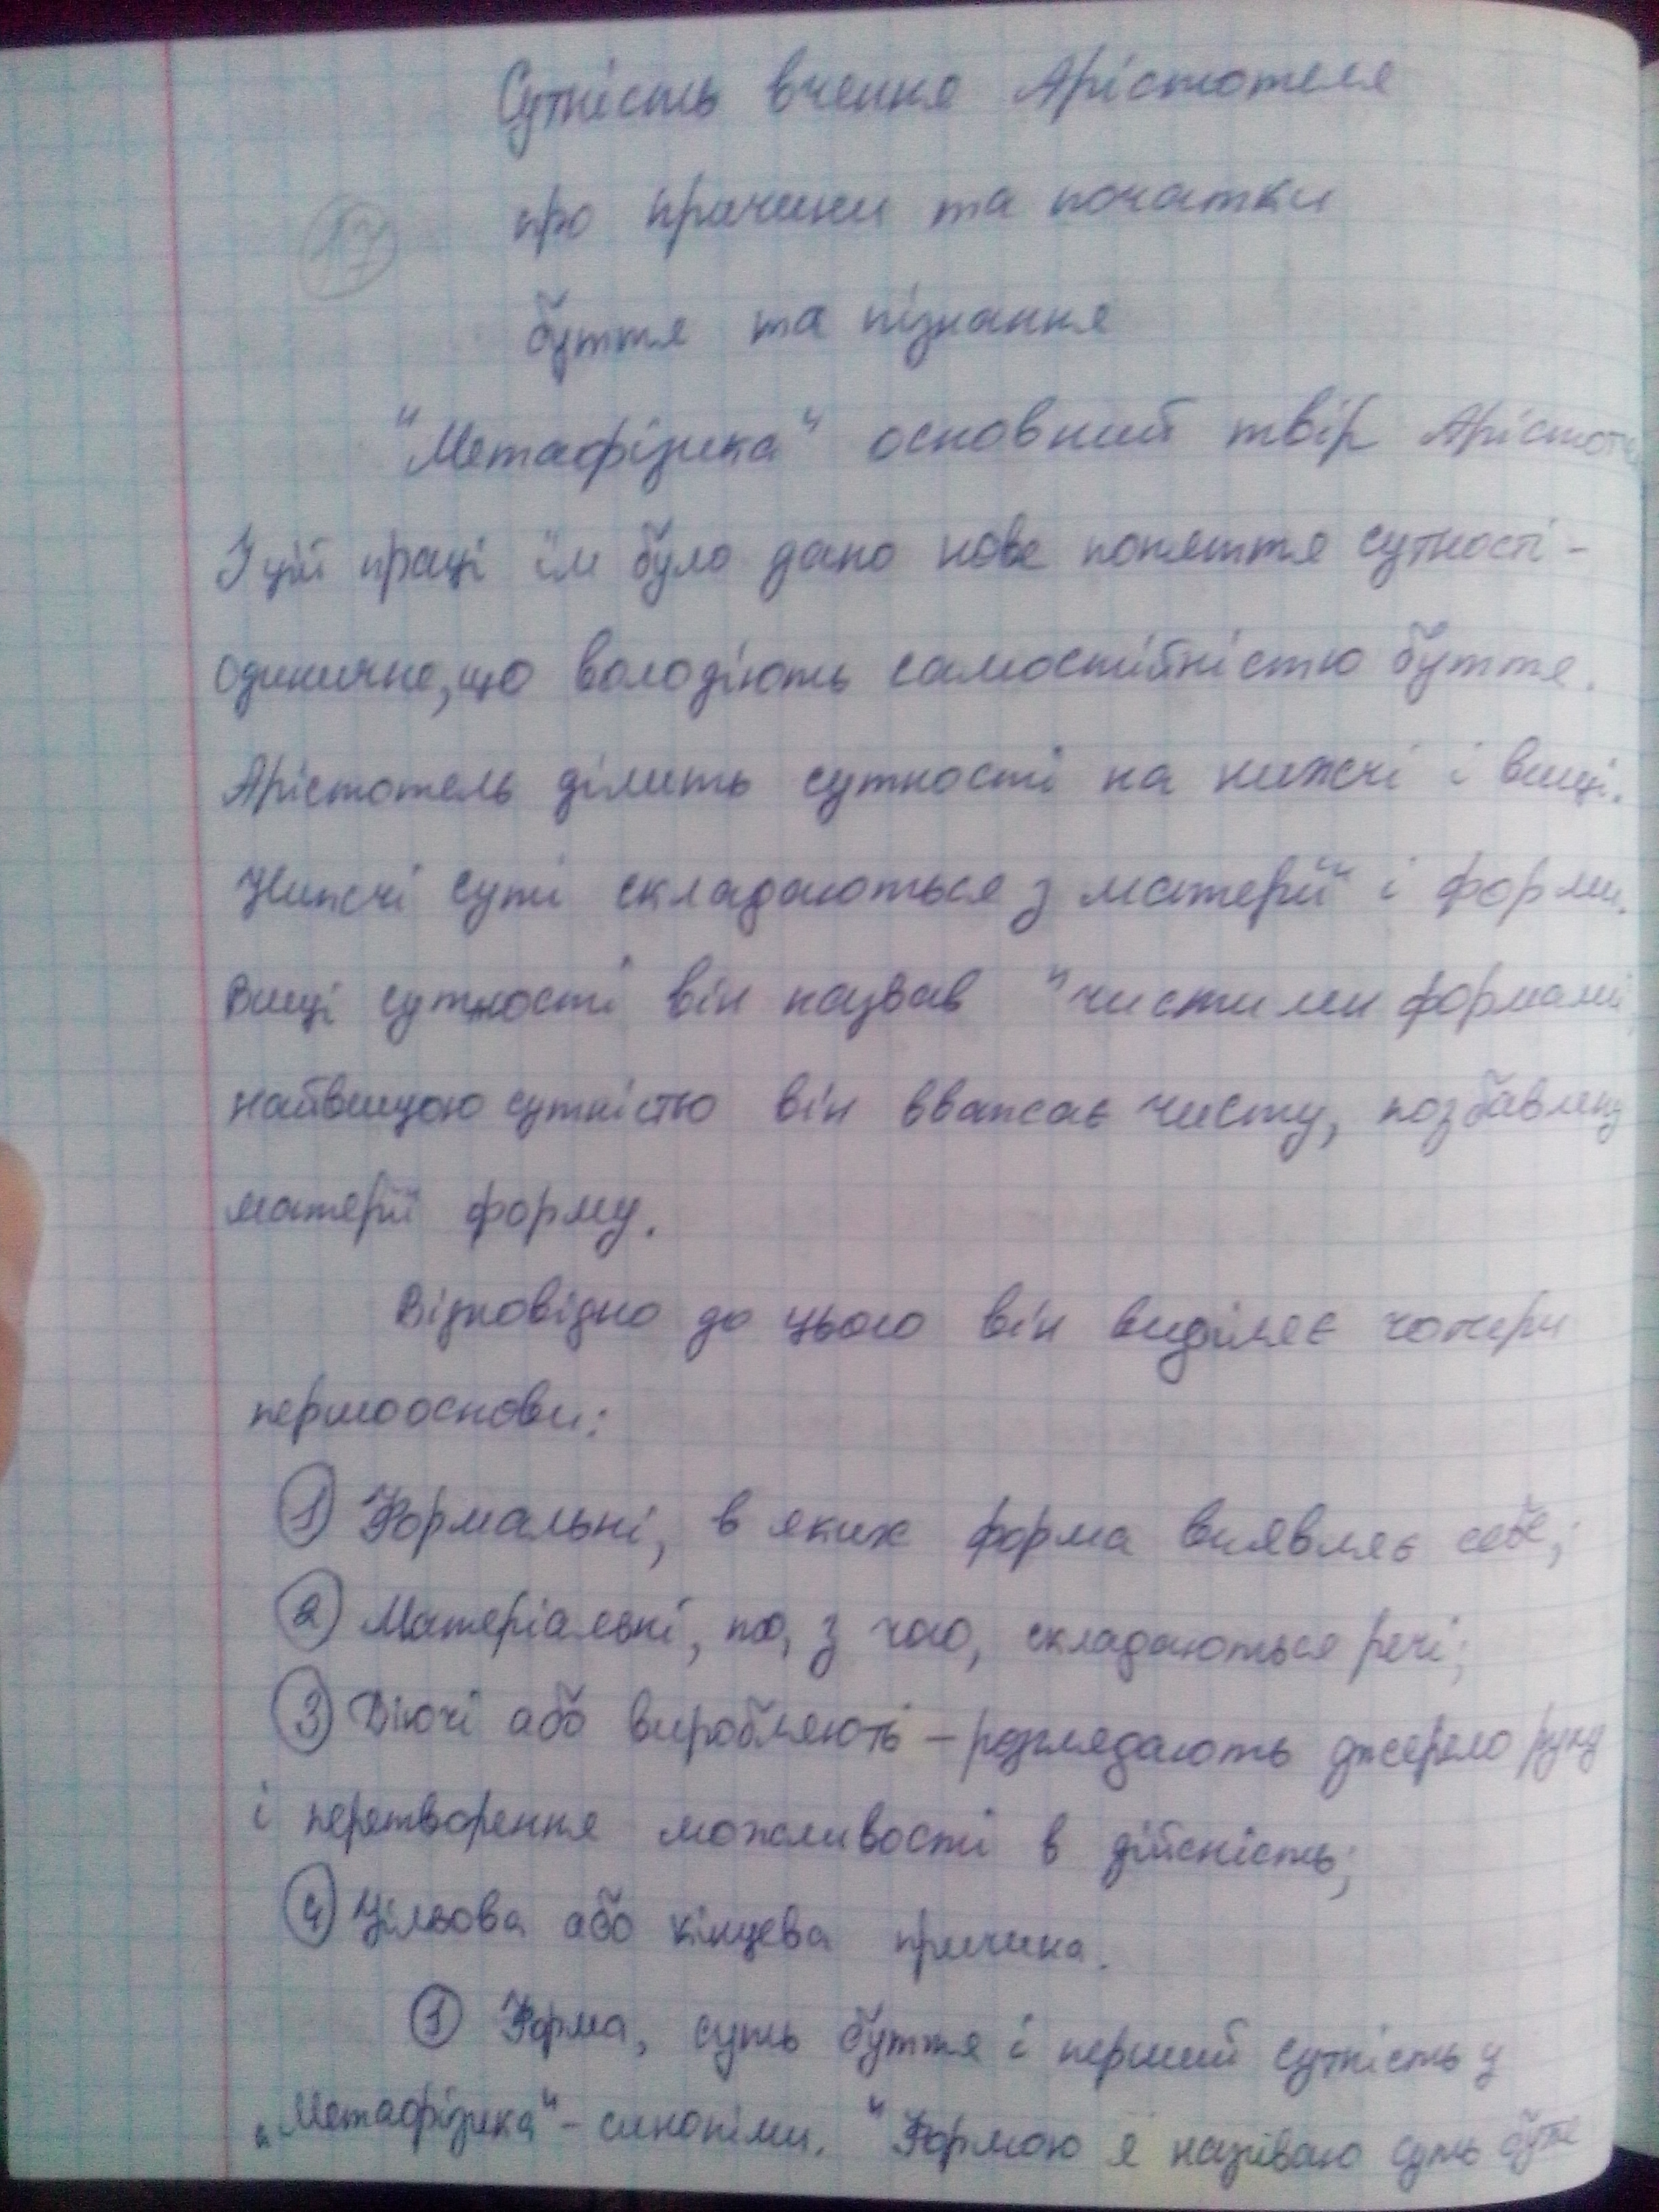 Сутність вчення Арістотеля
17
про причини та початки
буття та пізнання
"Метафізика" основний твір Арістоте
У цій праці їм було дано нове поняття сутності -
одиничне, що володіють самостійністю буття.
Арістотель ділить сутності на нижчі і вищі.
Нижчі суті складаються з матерії і форми.
Вищі сутності він назвав "чистими формами
найвищою сутністю він вважає чисту, позбавлену
матерії форму.
Відповідно до цього він виділяє чотири
першооснови:
① Формальні, в яких форма виявляє себе;
② Матеріальні, то, з чого, складаються речі;
③ Діючі або виробляють - розглядають джерело руху
і перетворення можливості в дійсність;
④ Цільова або кінцева причина.
① Форма, суть буття і перший сутність у
"Метафізика" - синоніми. "Формою я називаю суть буття